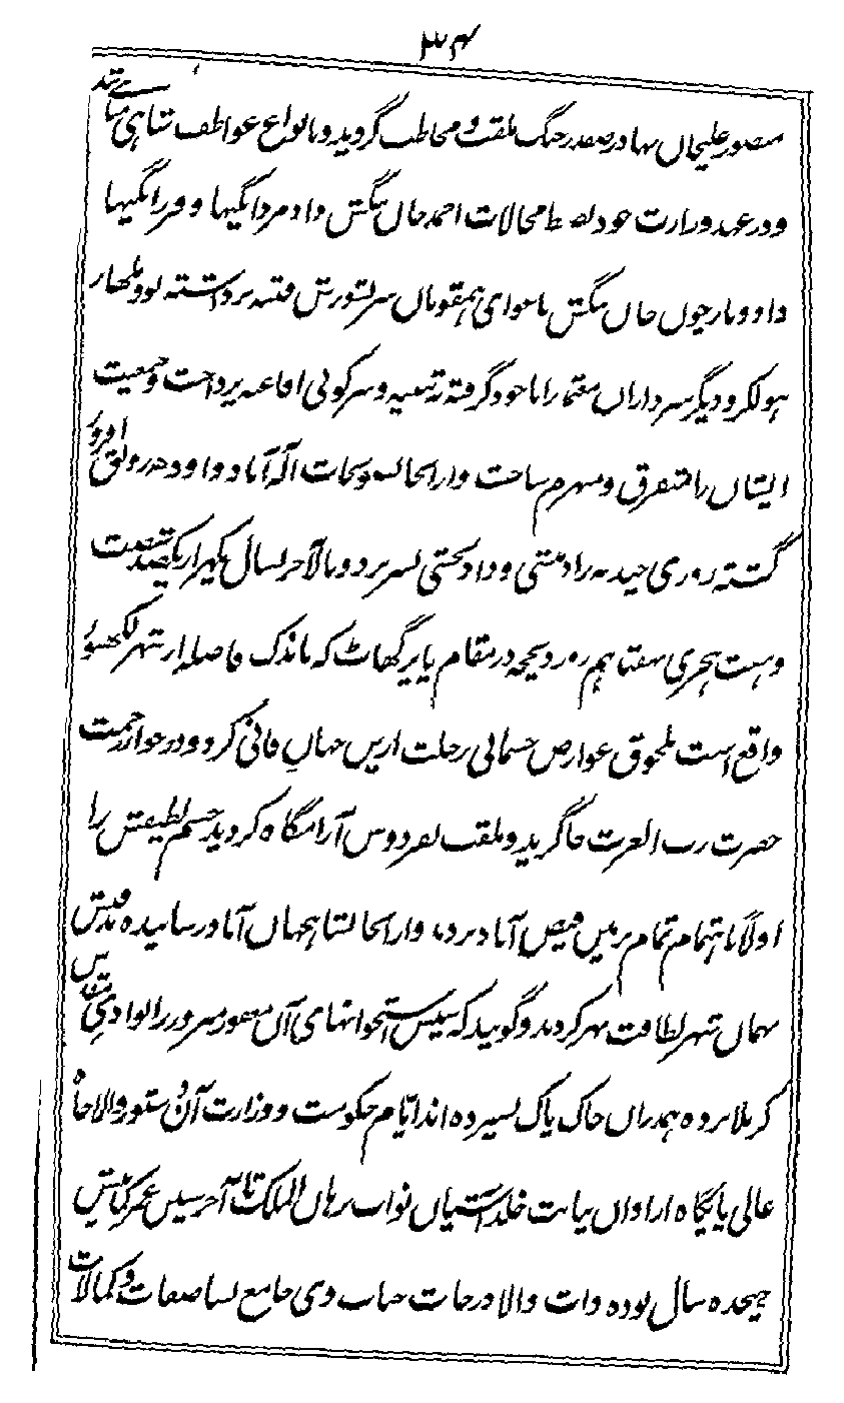 ۳۴
منصور علیخان بهادر صفدر جنگ ملقب و مخاطب گردید و بانواع عواطف شاهی مباهی شد
و در عهد وزارت خود بضبط محالات احمد خان بنگش داد مردانگیها و فرزانگیها
داد و بار چون خان بنگش باغوای همقومان سر بشورش و فتنه برداشته بود ملهار
هولکر و دیگر سرداران را با خود گرفته به تنبیه و سرکوبی افاغنه پرداخت و جمعیت
ایشان را متفرق و منهزم ساخت و از انجا بصوبجات اله آباد و اودهه رونق افروز
گشته روزی چند به رادمنشی و داد بخشی بسر برد و بالآخر بسال یکهزار و یکصد و شصت
و هشت هجری هفتدهم روز ذیحجه در مقام پاپر گهاٹ که باندک فاصله از شهر لکهنؤ
واقع است بلحوق عوارض جسمانی رحلت ازین جهان فانی کرد و در جوار رحمت
حضرت رب العزت جا گزید و ملقب بفردوس آرامگاه گردید جسم لطیفش را
اولاً باهتمام تمام بزمین فیض آباد برده و از انجا بشاهجهان آباد رسانیده مدفنش
بهمان شهر لطافت بهر کردند و گویند که سپس استخوانهای آن مغفور مبرور را بوادی مقدس
کربلا برده بهمدران خاک پاک سپرده اند ایام حکومت و وزارت آن دستور والا جاه
عالی پایگاه از اوان نیابت خلد آشیان نواب برهان الملک تا آخرسین عمر گرامیش
هیجده سال بوده ذات والا درجات جناب وی جامع بسا صفات و کمالات